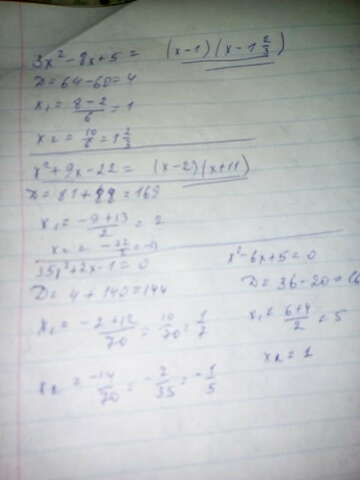 3x² - 8x + 5 = (x-1)(x-1 2/3)
D = 64 - 60 = 4
x₁ = (8-2)/6 = 1
x₂ = 10/6 = 1 2/3
x² + 9x - 22 = (x-2)(x+11)
D = 81 + 88 = 169
x₁ = (-9+13)/2 = 2
x₂ = -22/2 = -11
35x² + 2x - 1 = 0
D = 4 + 140 = 144
x₁ = (-2+12)/70 = 10/70 = 1/7
x₂ = -14/70 = -2/35 = -1/5
x² - 6x + 5 = 0
D = 36 - 20 = 16
x₁ = (6+4)/2 = 5
x₂ = 1